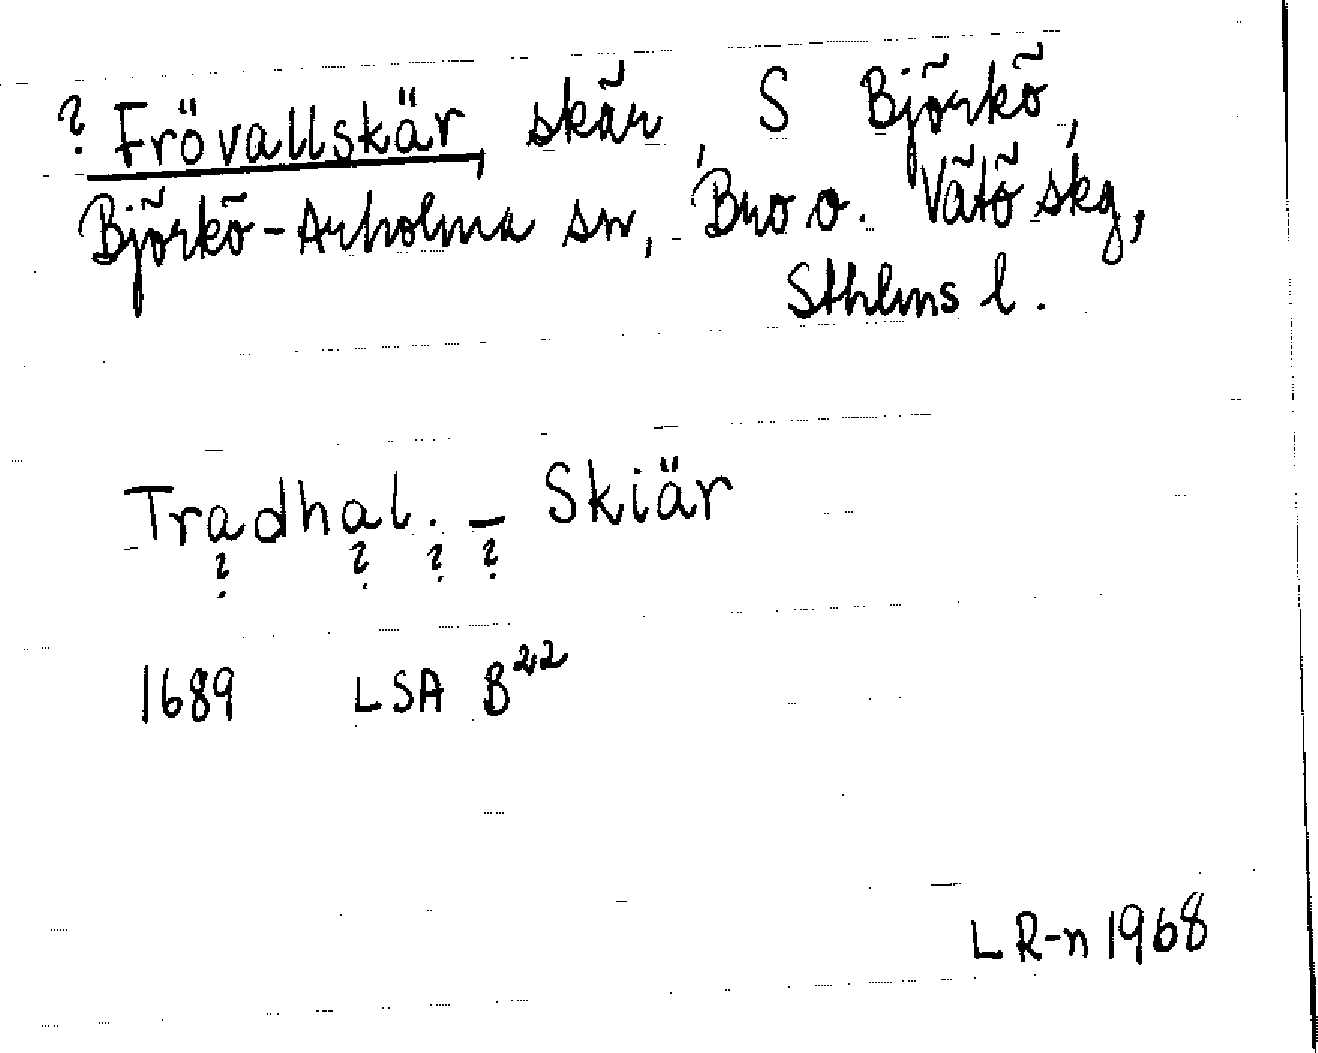 ? Frövallskär, skär, S Björkö,
Björkö-Arholma sn, Bro o. Vätö skg,
Sthlms l.
Tradhal. – Skiär
? ? ? ?
1689 LSA B 22
LR-n 1968